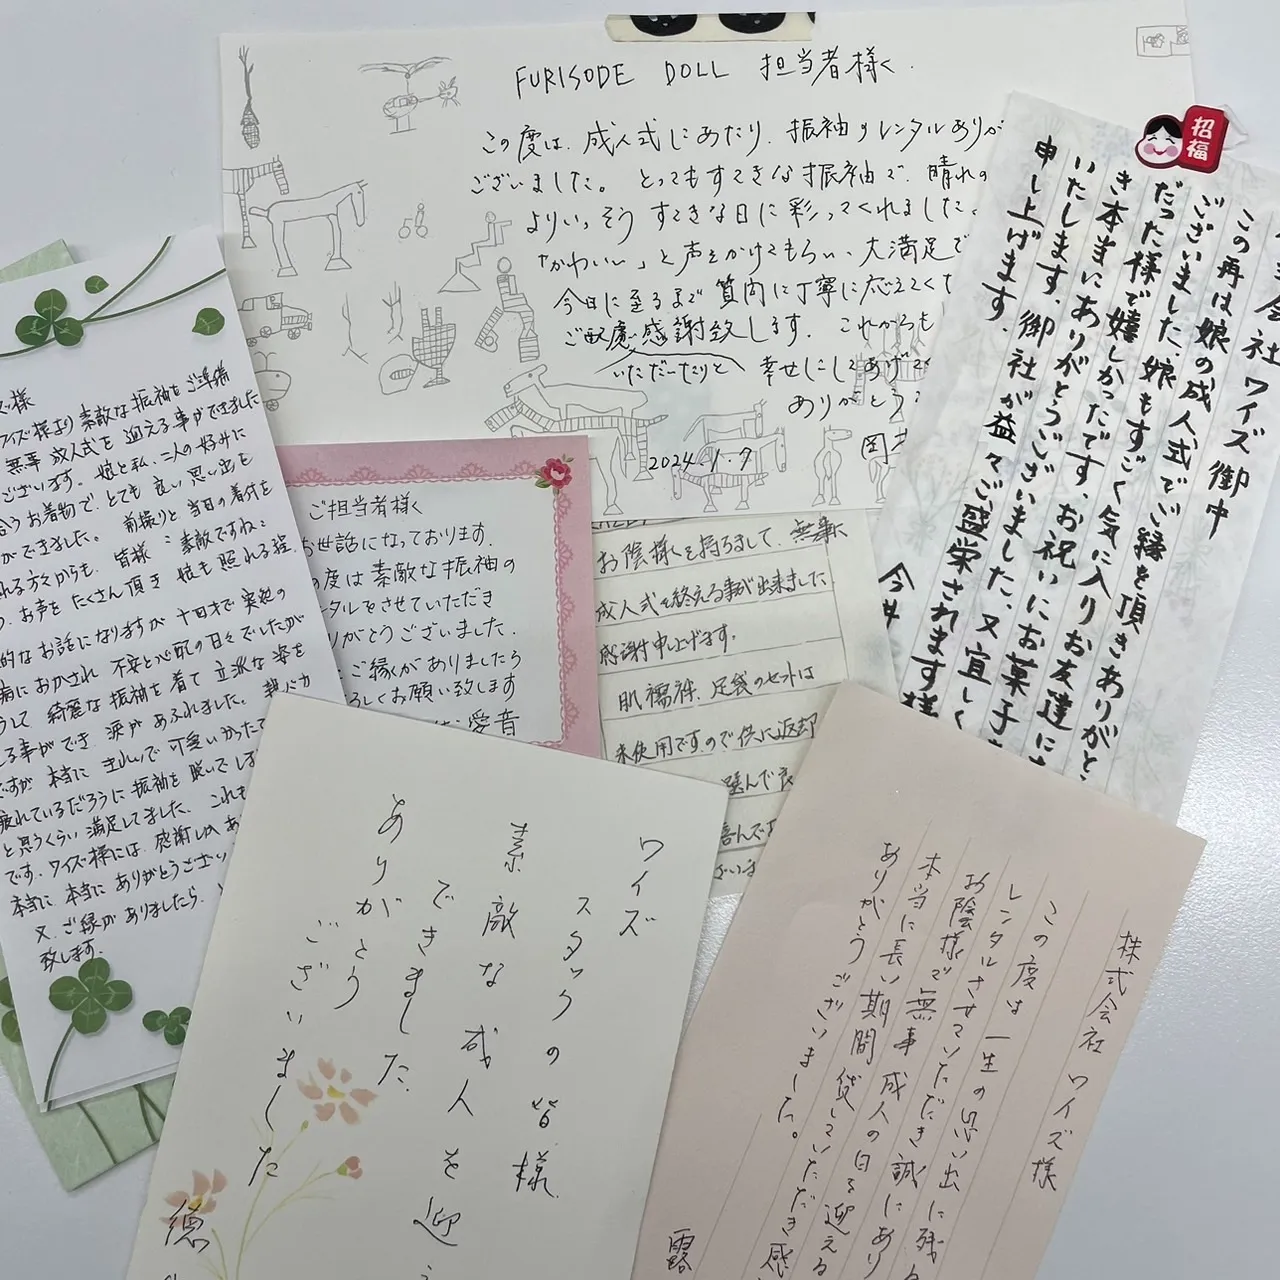 FURISODE DOLL 担当者様
この度は、成人式にあたり、振袖のレンタルありが
ございました。とってもすてきな振袖で、晴れの
よりいっそうすてきな日に彩ってくれました。
「かわいい」と声をかけてもらい、大満足で
今日に至るまで質問に丁寧に応えてくだ
ご配慮いただいたりと感謝致します。これからも
幸せにしてあげて
ありがとう
2024.1.9
招福
会社ワイズ御中
この再は娘の成人式でご縁を頂きありがと
ございました。娘もすごく気に入りお友達に
だった様で嬉しかったです。お祝いにお菓子
き本当にありがとうございました。又宜しく
いたします。御社が益々ご盛栄されます様
申し上げます。
今井
様
ワイズ様より素敵な振袖をご準備
無事成人式を迎える事ができました
ございます。娘と私、二人の好みに
合うお着物で、とても良い思い出を
ができました。前撮りと当日の着付を
れる方々からも、皆様に素敵ですね
お声をたくさん頂き娘も照れる程
的なお話になりますが十日才で突然の
病におかされ不安と心配の日々でしたが
うして綺麗な振袖を着て立派な姿を
る事ができ涙があふれました。親バカ
ですが本当にきれいで可愛いかったで
疲れているだろうに振袖を脱いでしま
と思うくらい満足してました。これも
です。ワイズ様には、感謝しかあ
本当に、本当にありがとうござい
又、ご縁がありましたら、
致します。
ご担当者様
お世話になっております。
の度は素敵な振袖の
タルをさせていただき
りがとうございました。
ご縁がありましたら
ろしくお願い致します
愛音
お陰様を持ちまして、無事に
成人式を終える事が出来ました
感謝申上げます。
肌襦袢、足袋のセットは
未使用ですので供に返却
ワイズ
スタッフの皆様
素敵な成人を迎
できました
ありがとう
ございました
株式会社ワイズ様
この度は一生の思い出に残る
レンタルさせていただき誠にあり
お陰様で無事成人の日を迎える
本当に長い期間貸していただき感
ありがとうございました。
露